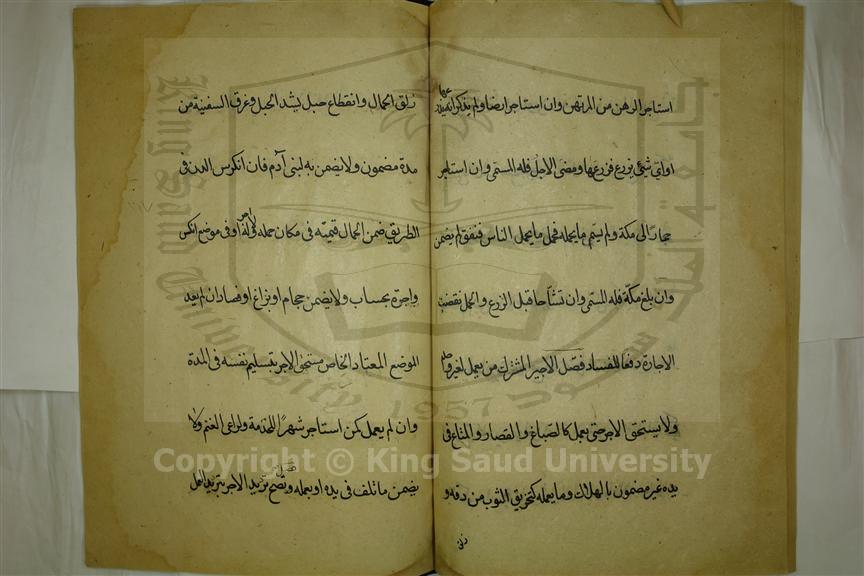 استاجر الرهن من المرتهن وان استاجر ارضا ولم يذكر انه يزرعها
او اي شيئ يزرع فزرعها ومضى الاجل فله المسمى وان استاجر
حمارا الى مكة ولم يسم ما يحمله فحمل ما يحمل الناس فنفق لم يضمن
وان بلغ مكة فله المسمى وان تشاحا قبل الزرع والحمل نقضت
الاجارة دفعا للفساد فصل الاجير المشترك من يعمل لغير واحد
ولا يستحق الاجر حتى يعمل كالصباغ والقصار والمتاع فى
يده غير مضمون بالهلاك وما يعمله كتخريق الثوب من دقه و
زلق
زلق الحمال وانقطاع حبل يشد الحمل وغرق السفينة من
مدة مضمون ولا يضمن به بنى آدم فان انكر س الدن فى
الطريق ضمن الحمال قيمته فى مكان حمله ولا اجر له او فى موضع انكسر
واجره بحساب ولا يضمن حجام او بزاغ او فصاد ان لم يعد
الموضع المعتاد والخاص مستحق الاجر بتسليم نفسه فى المدة
وان لم يعمل كمن استاجر شهرا للخدمة ولراعى الغنم ولا
يضمن ما تلف فى يده او بعمله فصل وتصح ترديد الاجر بترديد العمل
Copyright © King Saud University
King Saud University
1957